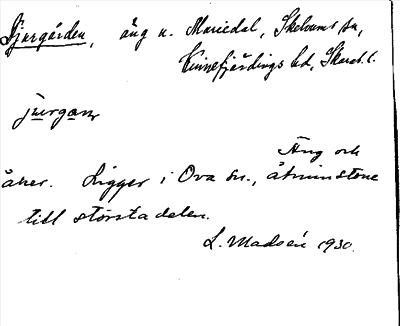 Djurgården, äng u. Mariedal, Skelvums sn,
Kinnefjärdings hd, Skarab. l.
jurgan
Äng och
åker. Ligger i Ova sn., åtminstone
till största delen.
L. Madsén 1930.